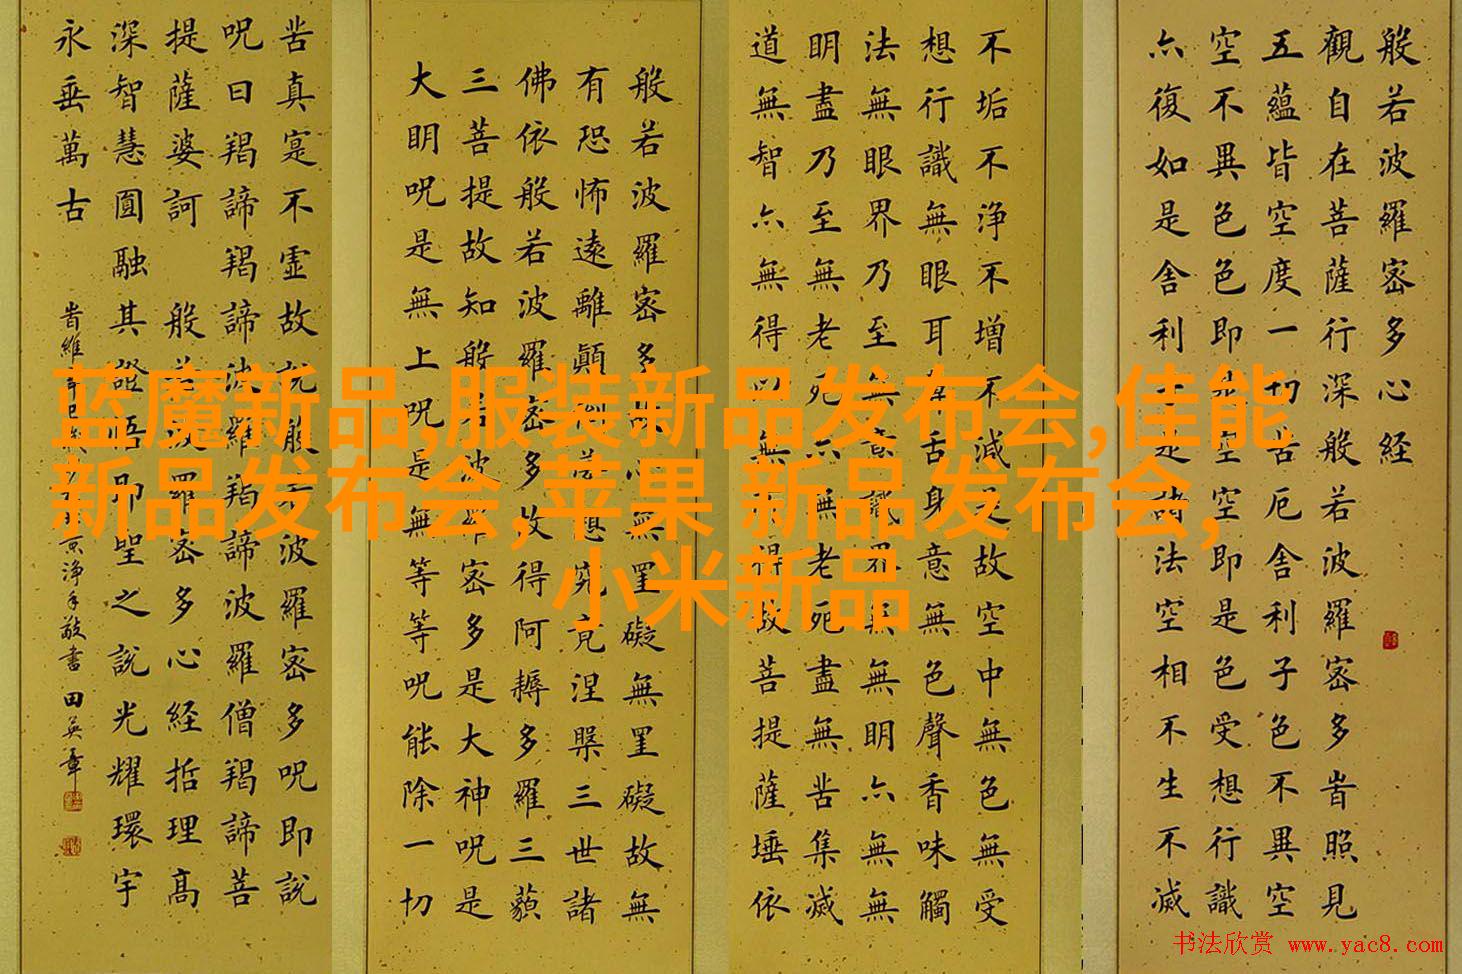 般若波羅密多心经
觀自在菩薩行深般若波羅密多峕照見
五蘊皆空度一切苦厄舍利子色不異空
空不異色色即是空空即是色受想行識
亦復如是舍利是諸法空相不生不滅
不垢不浄不增不減是故空中無色無受
想行識無眼耳鼻舌身意無色聲香味觸
法無眼界乃至無意識界無無明亦無無
明盡乃至無老死亦無老死盡無苦集滅
道無智亦無得以無得故菩提薩埵依
般若波羅密多故心無罣礙無罣礙故無
有恐怖遠離顛倒夢想究竟涅槃三世諸
佛依般若波羅密多故得阿耨多羅三藐
三菩提故知般若波羅密多是大神呪是
大明呪是無上呪是無等等呪能除一切
苦真寔不虛故説般若波羅密多呪即説
呪曰羯諦羯諦波羅羯諦波羅僧羯諦菩
提薩婆訶 般若波羅密多心经括理高
深智慧圓融其證悟即聖之説光耀環宇
永垂萬古
峕維京浄手敬書 田英章
蓝魔新品,服装新品发布会,佳能
新品发布会,苹果 新品发布会,
小米新品
书法欣赏 www.yac8.com